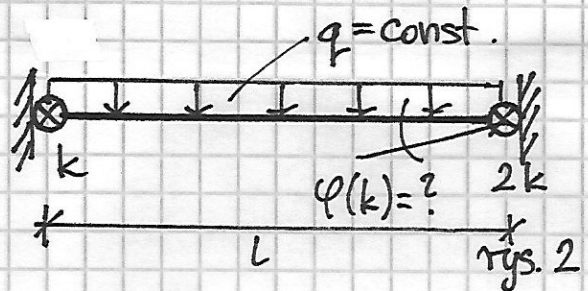 q = const.
k
φ(k) = ?
2k
L
rys. 2